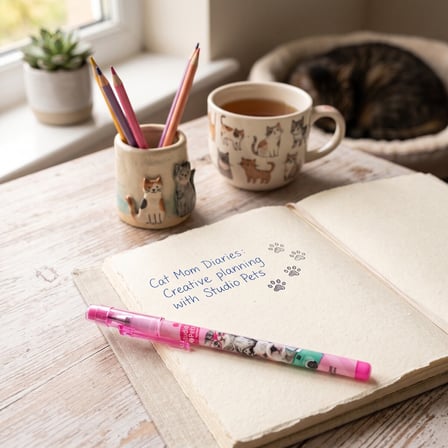 Cat Mom Diaries:
Creative planning
with Studio Pets